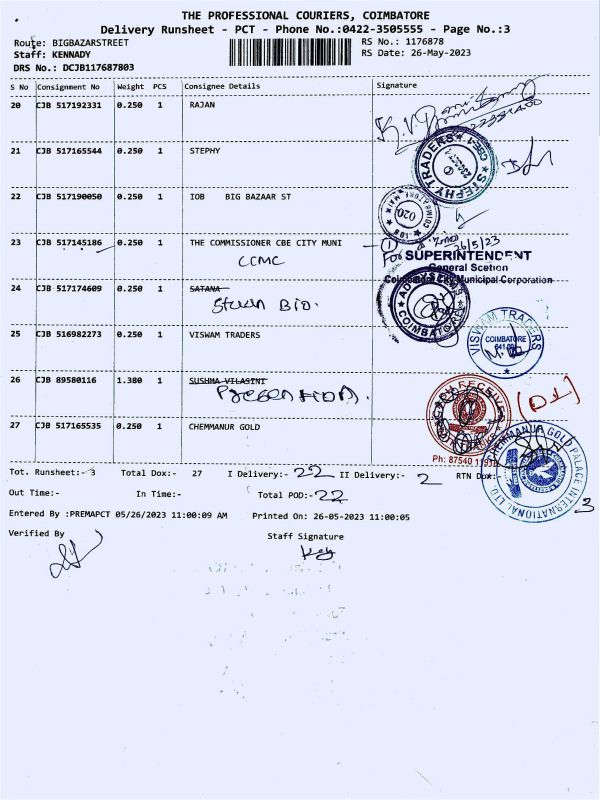 THE PROFESSIONAL COURIERS, COIMBATORE
Delivery Runsheet - PCT - Phone No.:0422-3505555 - Page No.:3
Route: BIGBAZARSTREET
RS No.: 1176878
Staff: KENNADY
RS Date: 26-May-2023
DRS No.: DCJB117687803
S No Consignment No Weight PCS Consignee Details Signature
20 CJB 517192331 0.250 1 RAJAN
21 CJB 517165544 0.250 1 STEPHY
STEPHY TRADERS
22 CJB 517190050 0.250 1 IOB BIG BAZAAR ST
020
23 CJB 517145186 0.250 1 THE COMMISSIONER CBE CITY MUNI
CCMC
26/5/23
SUPERINTENDENT
General Scetion
Coimbatore City Municipal Corporation
24 CJB 517174609 0.250 1 SATANA
COIMBATORE
25 CJB 516982273 0.250 1 VISWAM TRADERS
VISWAM TRACERS
COIMBATORE
26 CJB 89580116 1.380 1 SUSHMA VILASINI
Ph: 87540
27 CJB 517165535 0.250 1 CHEMMANUR GOLD
CHEMMANUR GOLD PALACE INTERNATIONAL LTD.
Tot. Runsheet:- 3 Total Dox:- 27 I Delivery:- 22 II Delivery:- 2 RTN Dox:- 3
Out Time:- In Time:- Total POD:- 22
Entered By :PREMAPCT 05/26/2023 11:00:09 AM Printed On: 26-05-2023 11:00:05
Verified By
Staff Signature